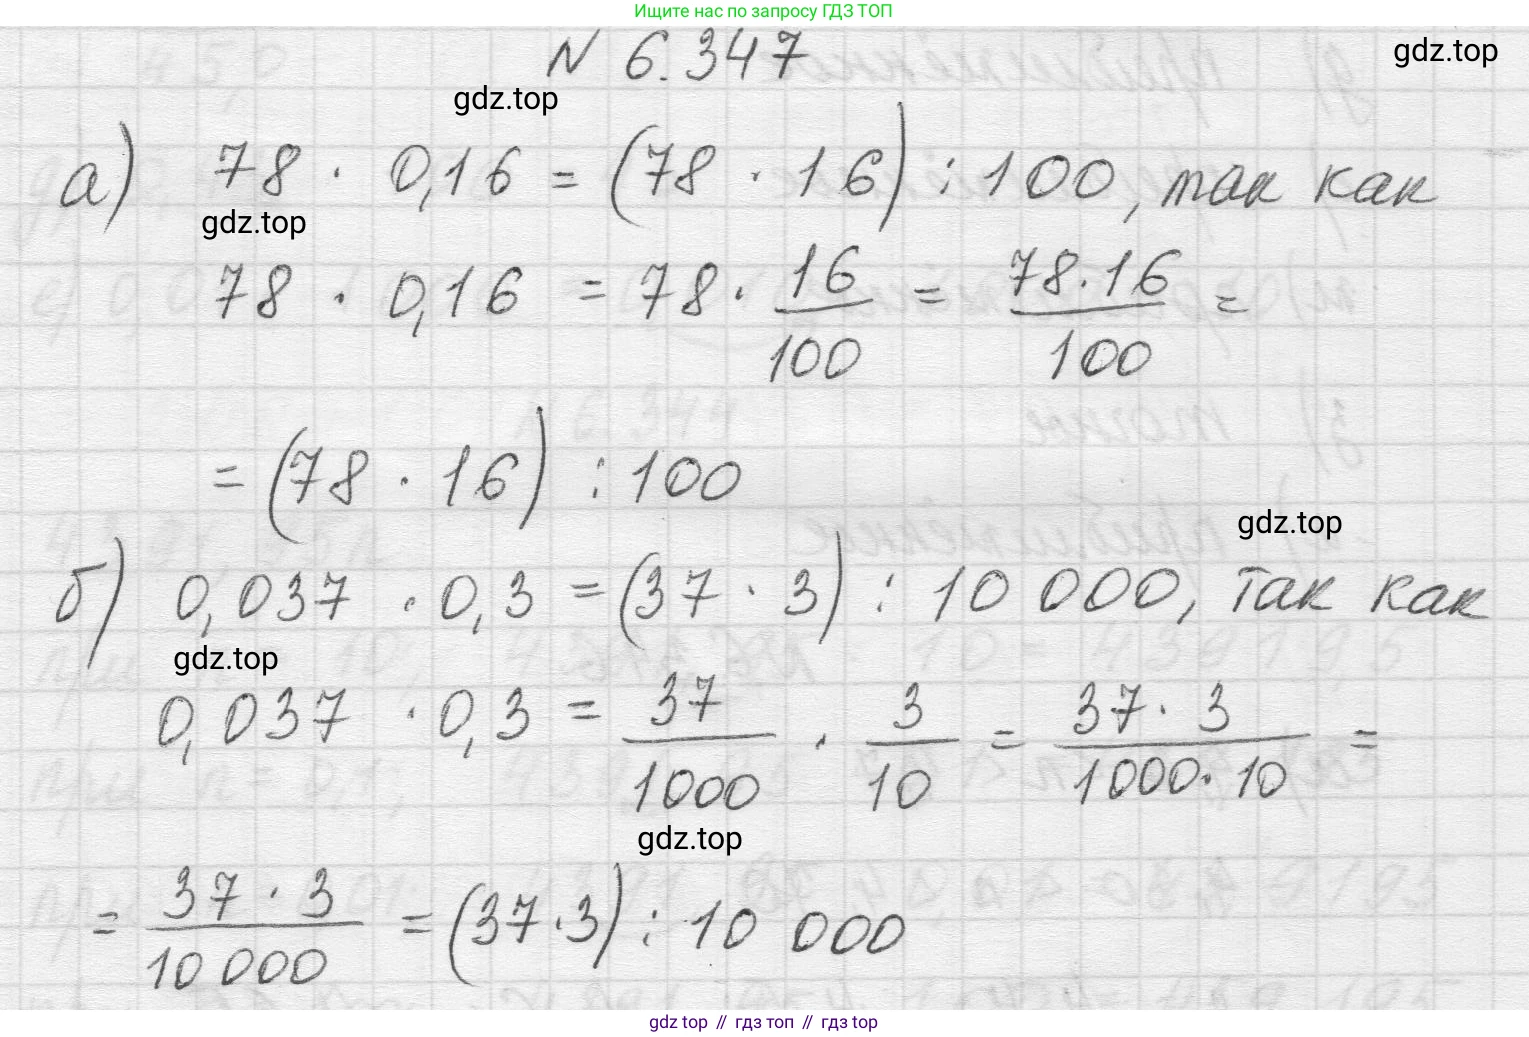 Ищите нас по запросу ГДЗ ТОП
N 6.347
gdz.top
gdz.top
а) 78 · 0,16 = (78 · 16) : 100, так как
gdz.top
78 · 0,16 = 78 · 16/100 = 78·16/100 =
= (78 · 16) : 100
gdz.top
б) 0,037 · 0,3 = (37 · 3) : 10 000, так как
gdz.top
0,037 · 0,3 = 37/1000 · 3/10 = 37 · 3/1000 · 10 =
gdz.top
= 37 · 3/10 000 = (37 · 3) : 10 000
gdz top // гдз топ // гдз top